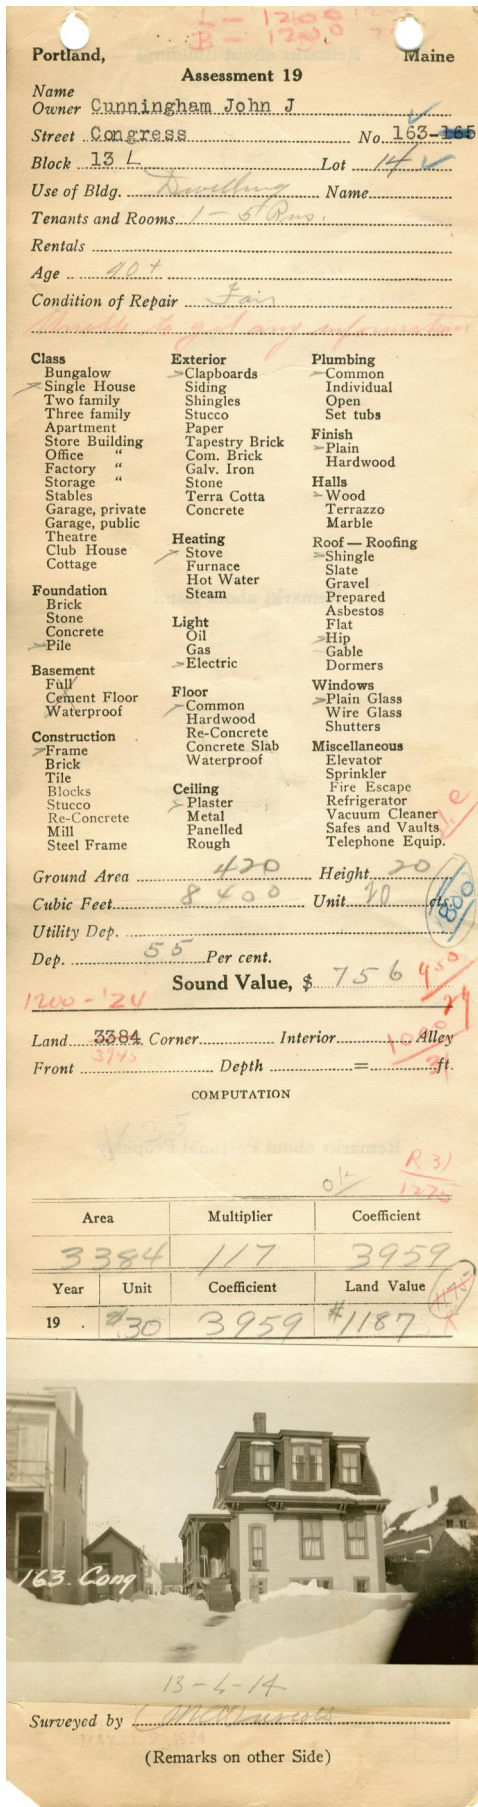 L - 1200
B - 1200
Portland, Maine
Assessment 19
Name
Owner Cunningham John J
Street Congress No. 163-165
Block 13 L Lot 14
Use of Bldg. Dwelling Name
Tenants and Rooms 1 - 5 Rms.
Rentals
Age 40+
Condition of Repair Fair
Unable to get any information
Class
Bungalow
Single House
Two family
Three family
Apartment
Store Building
Office "
Factory "
Storage "
Stables
Garage, private
Garage, public
Theatre
Club House
Cottage
Foundation
Brick
Stone
Concrete
Pile
Basement
Full
Cement Floor
Waterproof
Construction
Frame
Brick
Tile
Blocks
Stucco
Re-Concrete
Mill
Steel Frame
Exterior
Clapboards
Siding
Shingles
Stucco
Paper
Tapestry Brick
Com. Brick
Galv. Iron
Stone
Terra Cotta
Concrete
Heating
Stove
Furnace
Hot Water
Steam
Light
Oil
Gas
Electric
Floor
Common
Hardwood
Re-Concrete
Concrete Slab
Waterproof
Ceiling
Plaster
Metal
Panelled
Rough
Plumbing
Common
Individual
Open
Set tubs
Finish
Plain
Hardwood
Halls
Wood
Terrazzo
Marble
Roof — Roofing
Shingle
Slate
Gravel
Prepared
Asbestos
Flat
Hip
Gable
Dormers
Windows
Plain Glass
Wire Glass
Shutters
Miscellaneous
Elevator
Sprinkler
Fire Escape
Refrigerator
Vacuum Cleaner
Safes and Vaults
Telephone Equip.
Ground Area 420 Height 20
Cubic Feet 8400 Unit 20 cts.
1800
Utility Dep.
Dep. 55 Per cent.
Sound Value, $ 756
950
24
1200 - '24
Land 3384 Corner Interior Alley
3945
1000
31
Front Depth = ft.
COMPUTATION
V 35
R 31
1275
OK
Area Multiplier Coefficient
3384 117 3959
Year Unit Coefficient Land Value
19 $30 3959 $1187
163. Cong
13-L-14
Surveyed by
(Remarks on other Side)